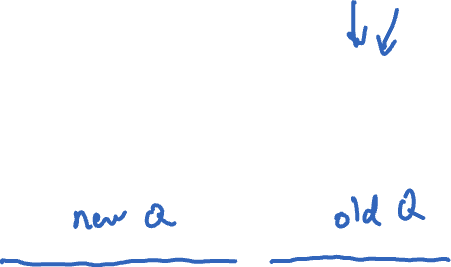 new Q old Q